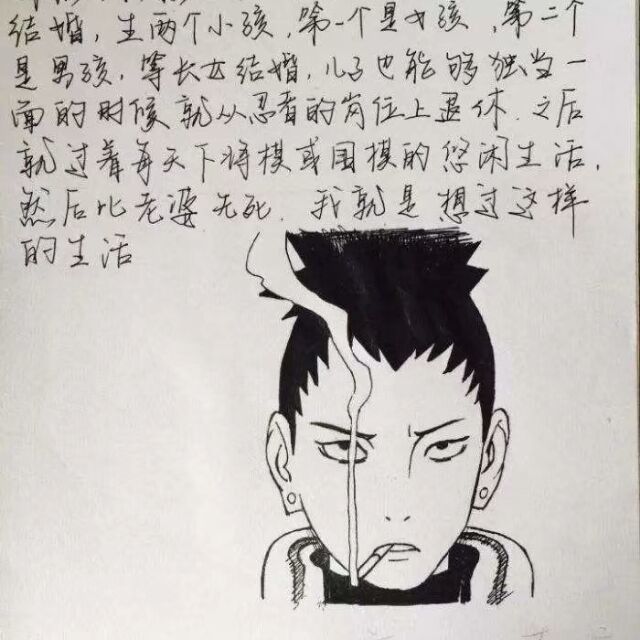 结婚，生两个小孩，第一个是女孩，第二个
是男孩，等长女结婚，儿子也能够独当一
面的时候就从忍者的岗位上退休．之后
就过着每天下将棋或围棋的悠闲生活，
然后比老婆先死．我就是想过这样
的生活